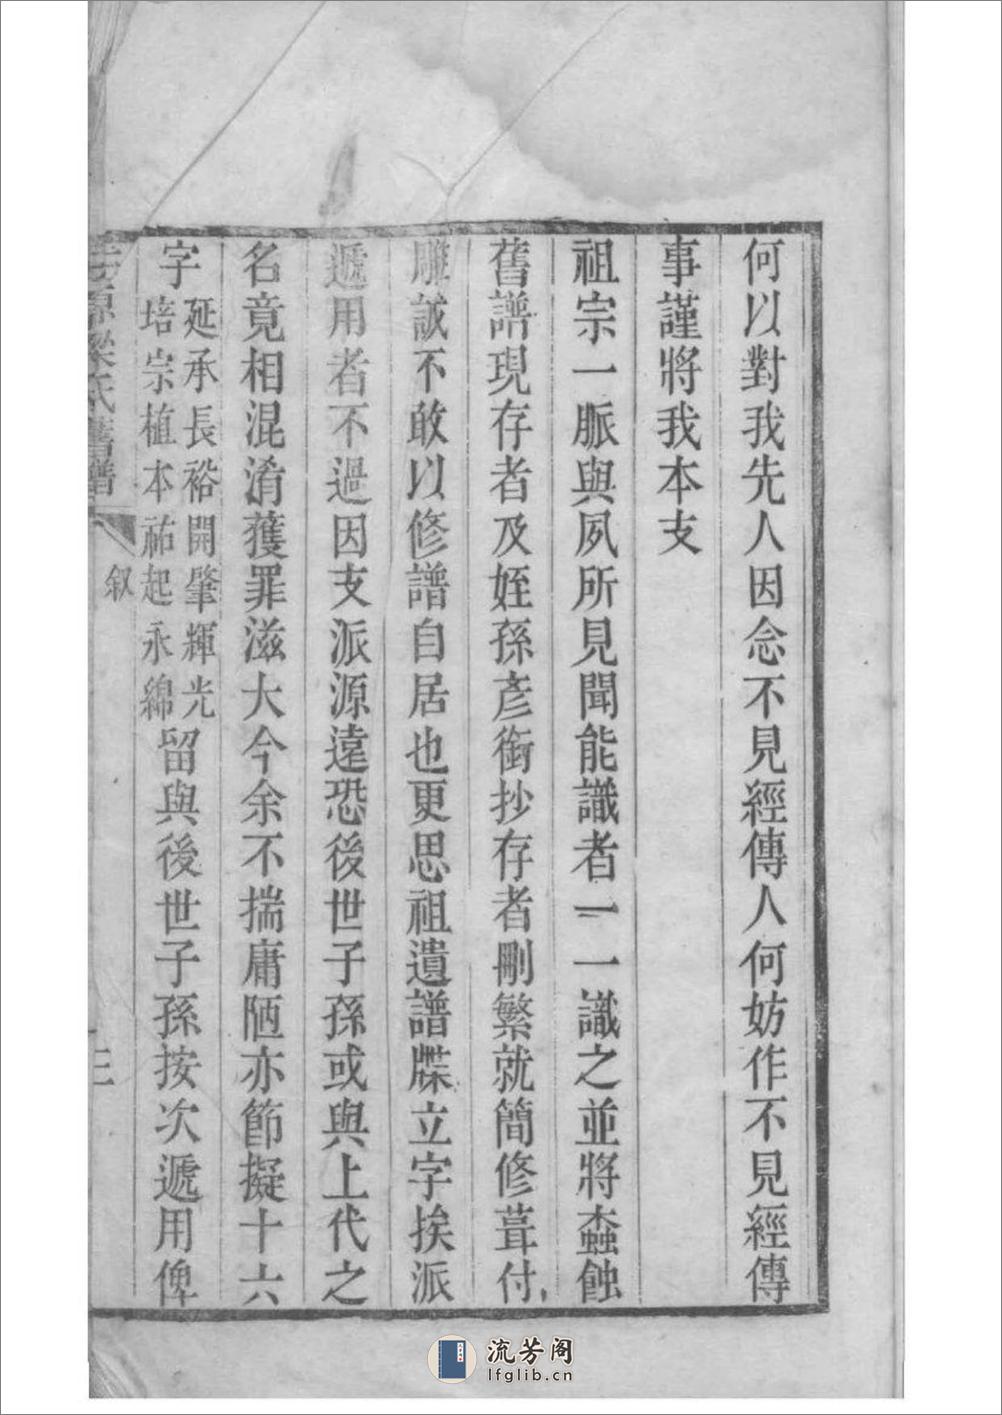 何以對我先人因念不見經傳人何妨作不見經傳
事謹將我本支
祖宗一脈與夙所見聞能識者一一識之並將蠹蝕
舊譜現存者及姪孫彥銜抄存者刪繁就簡修葺付
雕誠不敢以修譜自居也更思祖遺譜牒立字挨派
遞用者不過因支派源遠恐後世子孫或與上代之
名竟相混淆獲罪滋大今余不揣庸陋亦節擬十六
字
延承長裕開肇輝光
培宗植本祐起永綿
留與後世子孫按次遞用俾
氏舊譜
叙
三
流芳阁
lfglib.cn